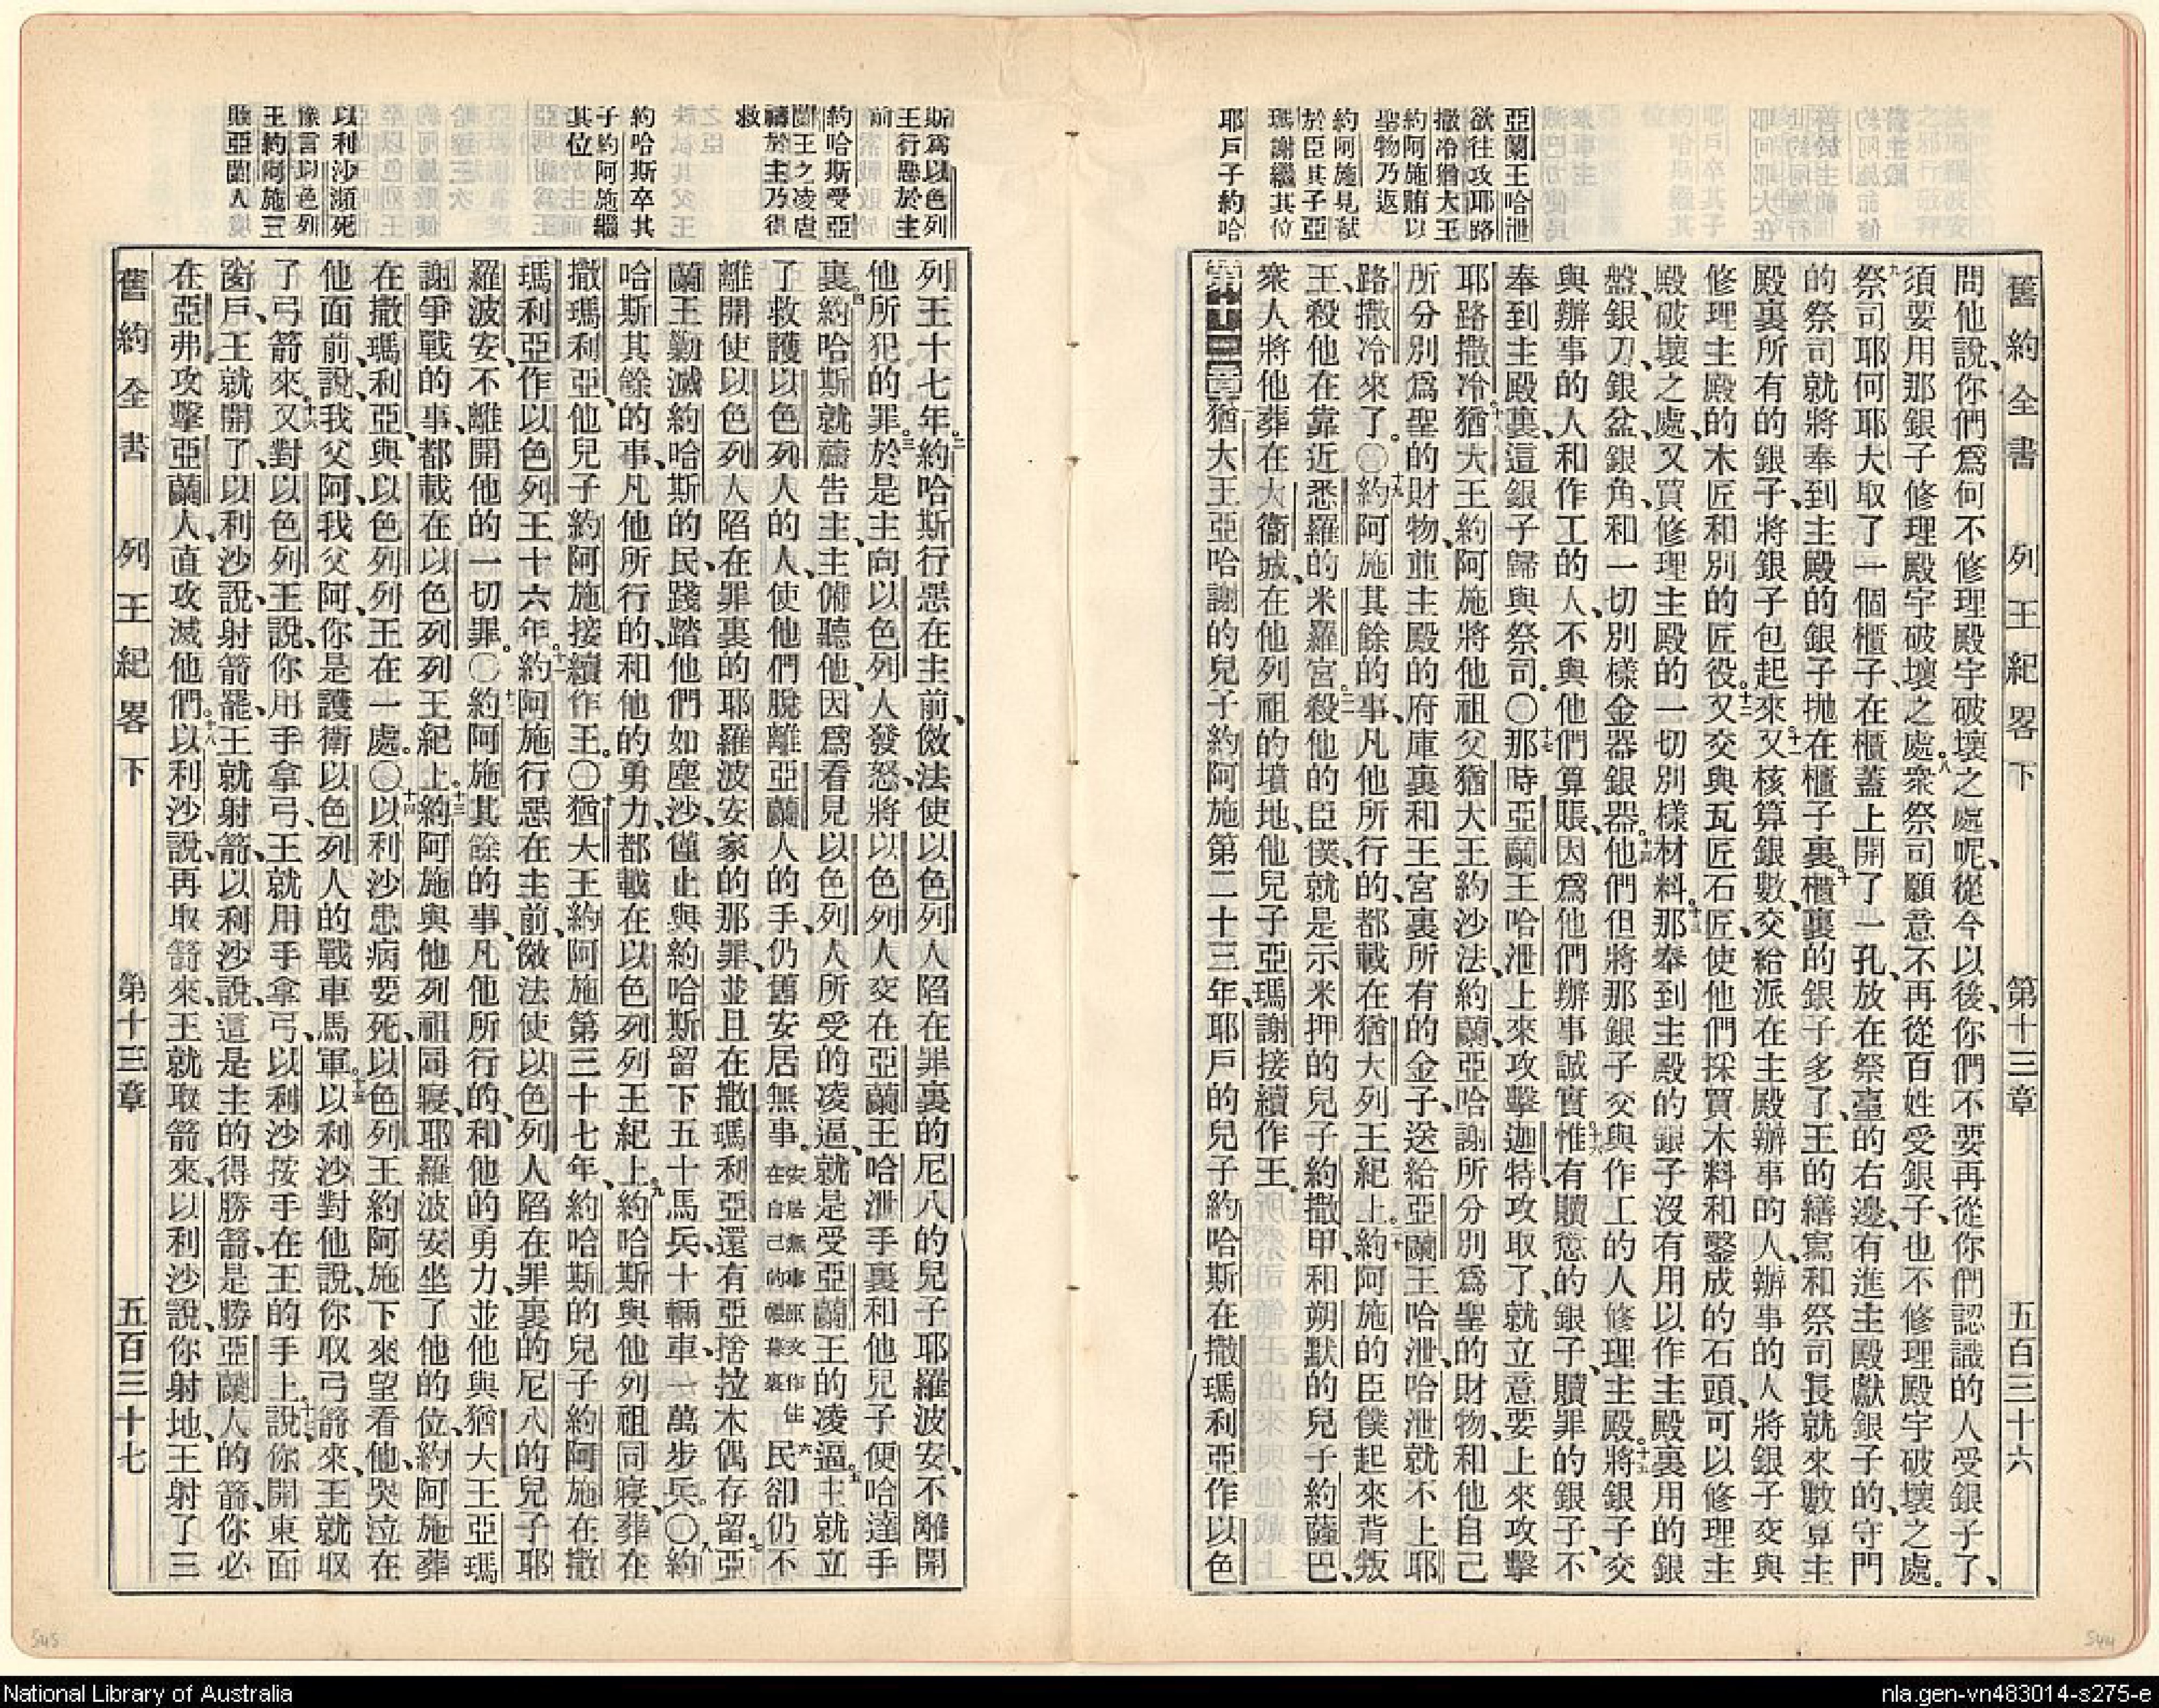 亞蘭王哈泄
欲往攻耶路
撒冷猶大王
約阿施賄以
聖物乃返
約阿施見弒
於臣其子亞
瑪謝繼其位
耶戶子約哈
舊約全書 列王紀畧下 第十三章 五百三十六
問他說、你們爲何不修理殿宇破壞之處呢、從今以後、你們不要再從你們認識的人受銀子了、
須要用那銀子修理殿宇破壞之處。八衆祭司願意不再從百姓受銀子、也不修理殿宇破壞之處。
九祭司耶何耶大取了一個櫃子、在櫃蓋上開了一孔、放在祭臺的右邊、有進主殿獻銀子的、守門
的祭司就將奉到主殿的銀子拋在櫃子裏。十櫃裏的銀子多了、王的繕寫和祭司長就來數算主
殿裏所有的銀子、將銀子包起來。十一又核算銀數、交給派在主殿辦事的人、辦事的人將銀子交與
修理主殿的木匠和別的匠役。十二又交與瓦匠石匠、使他們採買木料和鑿成的石頭、可以修理主
殿破壞之處、又買修理主殿的一切別樣材料。十三那奉到主殿的銀子沒有用以作主殿裏用的銀
盤、銀刀、銀盆、銀角、和一切別樣金器銀器。十四他們但將那銀子交與作工的人修理主殿。十五將銀子交
與辦事的人和作工的人、不與他們算賬、因爲他們辦事誠實。十六惟有贖愆的銀子、贖罪的銀子、不
奉到主殿裏、這銀子歸與祭司。〇十七那時亞蘭王哈泄上來攻擊迦特、攻取了、就立意要上來攻擊
耶路撒冷。十八猶大王約阿施將他祖父猶大王約沙法、約蘭、亞哈謝所分別爲聖的財物、和他自己
所分別爲聖的財物、並主殿的府庫裏和王宮裏所有的金子、送給亞蘭王哈泄、哈泄就不上耶
路撒冷來了。〇十九約阿施其餘的事、凡他所行的、都載在猶大列王紀上。二十約阿施的臣僕起來背叛
王、殺他在靠近悉羅的米羅宮。二一殺他的臣僕、就是示米押的兒子約撒甲、和朔默的兒子約薩巴、
衆人將他葬在大衞城、在他列祖的墳地、他兒子亞瑪謝接續作王。
第十三章一猶大王亞哈謝的兒子約阿施第二十三年、耶戶的兒子約哈斯在撒瑪利亞作以色
斯爲以色列
王行惡於主
前
約哈斯受亞
蘭王之凌虐
禱於主乃得
救
約哈斯卒其
子約阿施繼
其位
以利沙瀕死
豫言以色列
王約阿施三
勝亞蘭人
列王十七年。二約哈斯行惡在主前、傚法使以色列人陷在罪裏的尼八的兒子耶羅波安、不離開
他所犯的罪。三於是主向以色列人發怒、將以色列人交在亞蘭王哈泄手裏和他兒子便哈達手
裏。四約哈斯就禱告主、主俯聽他、因爲看見以色列人所受的凌逼、就是受亞蘭王的凌逼。五主就立
了救護以色列人的人、使他們脫離亞蘭人的手、仍舊安居無事。安居無事原文作住在自己的帳幕裏六民卻仍不
離開使以色列人陷在罪裏的耶羅波安家的那罪、並且在撒瑪利亞還有亞捨拉木偶存留。七亞
蘭王勦滅約哈斯的民、踐踏他們如塵沙、僅止與約哈斯留下五十馬兵、十輛車、一萬步兵。〇八約
哈斯其餘的事、凡他所行的和他的勇力、都載在以色列列王紀上。九約哈斯與他列祖同寢、葬在
撒瑪利亞、他兒子約阿施接續作王。〇十猶大王約阿施第三十七年、約哈斯的兒子約阿施在撒
瑪利亞、作以色列王十六年。十一約阿施行惡在主前、傚法使以色列人陷在罪裏的尼八的兒子耶
羅波安、不離開他的一切罪。〇十二約阿施其餘的事、凡他所行的、和他的勇力、並他與猶大王亞瑪
謝爭戰的事、都載在以色列列王紀上。十三約阿施與他列祖同寢、耶羅波安坐了他的位、約阿施葬
在撒瑪利亞、與以色列列王在一處。〇十四以利沙患病要死、以色列王約阿施下來望看他、哭泣在
他面前、說、我父阿、我父阿、你是護衞以色列人的戰車馬軍。十五以利沙對他說、你取弓箭來、王就取
了弓箭來。十六又對以色列王說、你用手拿弓、王就用手拿弓、以利沙按手在王的手上。十七說、你開東面
窗戶、王就開了、以利沙說、射箭罷、王就射箭、以利沙說、這是主的得勝箭、是勝亞蘭人的箭、你必
在亞弗攻擊亞蘭人、直攻滅他們。十八以利沙說、再取箭來、王就取箭來、以利沙說、你射地、王射了三
舊約全書 列王紀畧下 第十三章 五百三十七
545
544
National Library of Australia
nla.gen-vn483014-s275-e